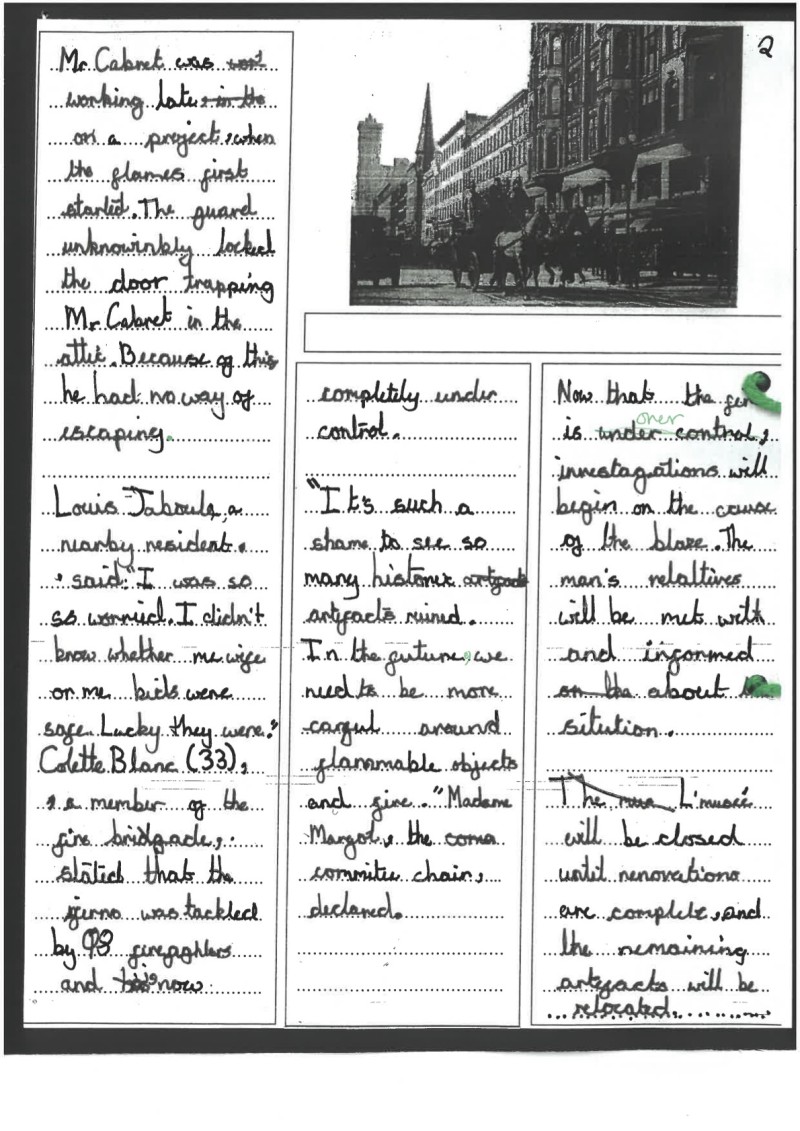 2
Mr. Cabret was
working late, in the
on a project, when
the flames first
started. The guard
unknowinkly locked
the door trapping
Mr. Cabret in the
attic. Because of this
he had no way of
escaping.
Louis Jaboule, a
nearby resident,
said: "I was so
so worried. I didn't
know whether me wife
or me kids were
safe. Lucky they were."
Colette Blanc (33),
a member of the
fire bridgade,
stated that the
was tackled
by firefighters
and now
completely under
control.
"It's such a
shame to see so
many historic
artifacts ruined.
In the future, we
need to be more
carful around
flammable objects
and fire." Madame
Margot, the coma
commitee chair,
declared.
Now that the
over
is under control,
investagations will
begin on the cause
of the blaze. The
man's relaltives
will be met with
and informed
on the about
sitution.
The mus L'museé
will be closed
until renovations
are complete, and
the remaining
artefacts will be
relocated.